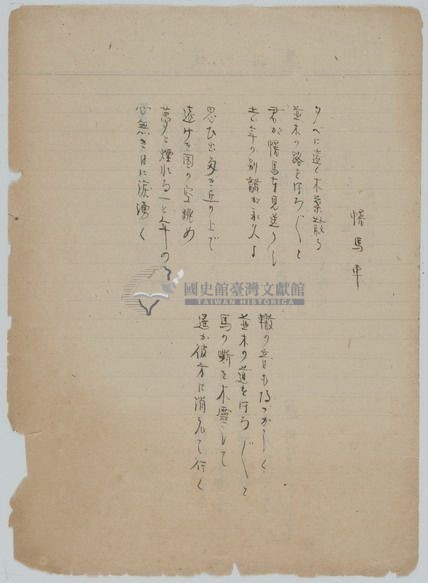 幌馬車
夕べに遠く木葉散る
並木の路をほろ〴〵と
君が幌馬車見送りし
去年の別離が永久よ
思ひ出多き丘の上で
遠けき国の空眺め
夢と煙れる一と年の
心無き日に涙湧く
轍の音もなつかしく
並木の道をほろ〴〵と
馬の嘶き木霊して
遥か彼方に消えて行く
國史館臺灣文獻館
TAIWAN HISTORICA